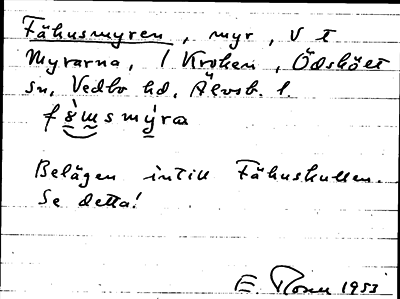 Fähusmyren, myr, V t
Myrarna, 1 Kroken, Ödskölt
sn, Vedbo hd, Älvsb. l.
Belägen intill Fähuskullen.
Se detta!
E. 1953